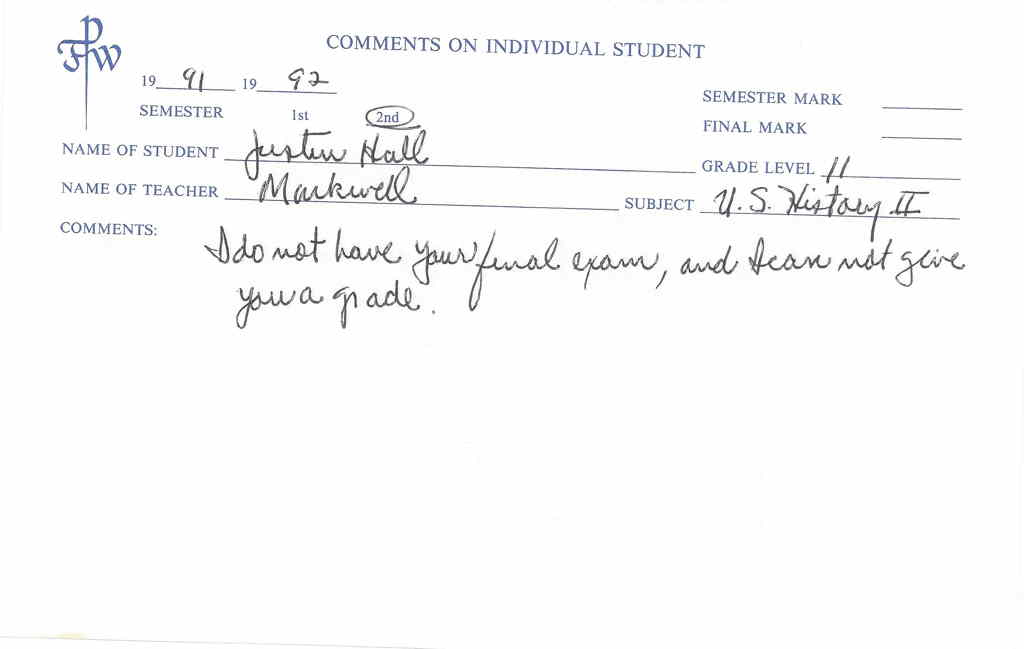 FPW
COMMENTS ON INDIVIDUAL STUDENT
19 91 19 92
SEMESTER 1st 2nd
SEMESTER MARK
FINAL MARK
NAME OF STUDENT Justin Hall
GRADE LEVEL 11
NAME OF TEACHER Markwell
SUBJECT U.S. History II
COMMENTS:
I do not have your final exam, and I can not give
you a grade.